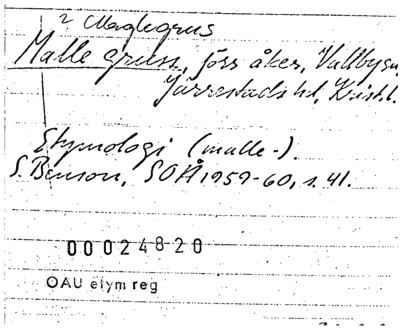 2 Maglegrus
Malle gruss, förr åker, Vallby sn,
Järrestads hd, Krist. l.
Etymologi (malle-).
S. Benson, SOÅ 1959-60, s. 41.
00024820
OAU etym reg